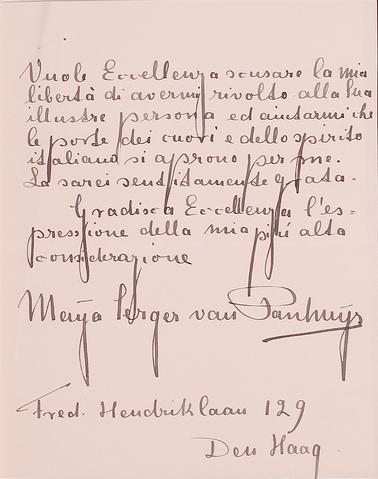 Vuole Eccellenza scusare la mia
libertà di avermi rivolto alla Sua
illustre persona ed aiutarmi che
le porte dei cuori e dello spirito
italiano si aprono per me.
Le sarei sentitamente grata.
Gradisca Eccellenza l'es-
pressione della mia più alta
considerazione
Maya Perger van Panhuys
Fred. Hendriklaan 129
Den Haag